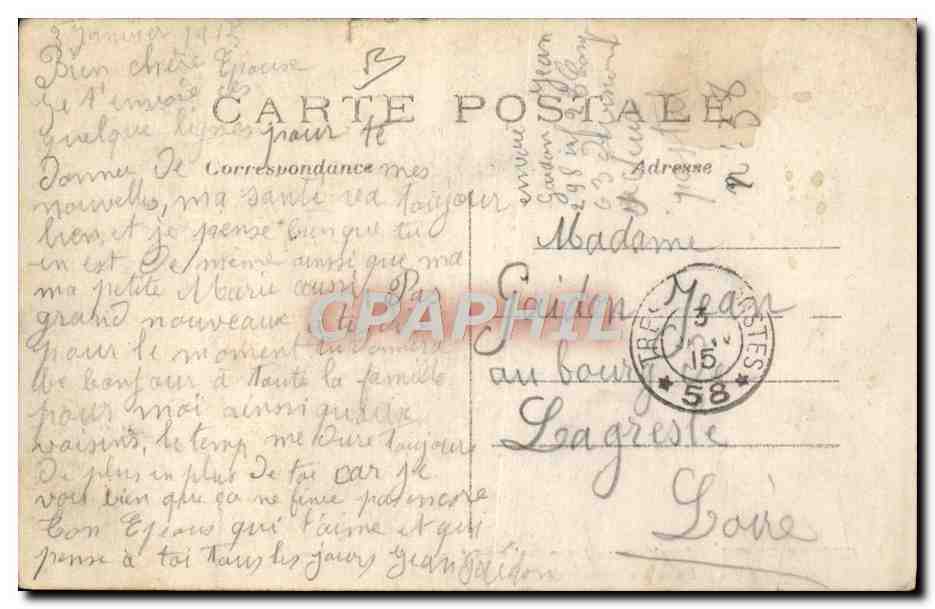 3 Janvier 1915
Bien chère Epouse
Je t'envoie ces
quelque lignes pour te
donner de mes
nouvelles, ma santé va toujour
bien, et je pense bien que tu
en est de même ainsi que ma
ma petite Marie aussi Pas
grand nouveaux
pour le moment tu donnera
le bonjour à toute la famille
pour moi ainsi queux
voisins, le temp me dure toujours
de plus en plus de toi car je
vois bien que ça ne finie pas encore
Ton Epoux qui t'aime et qui
pense à toi tous les jours Jean Gaidon
CARTE POSTALE
Correspondance
Adresse
envoie
Gaidon Jean
298
63
Madame
Gaidon Jean
au bourg de
Lagresle
Loire
TRESOR POSTES
3
15
* 58 *
CPARPHIL